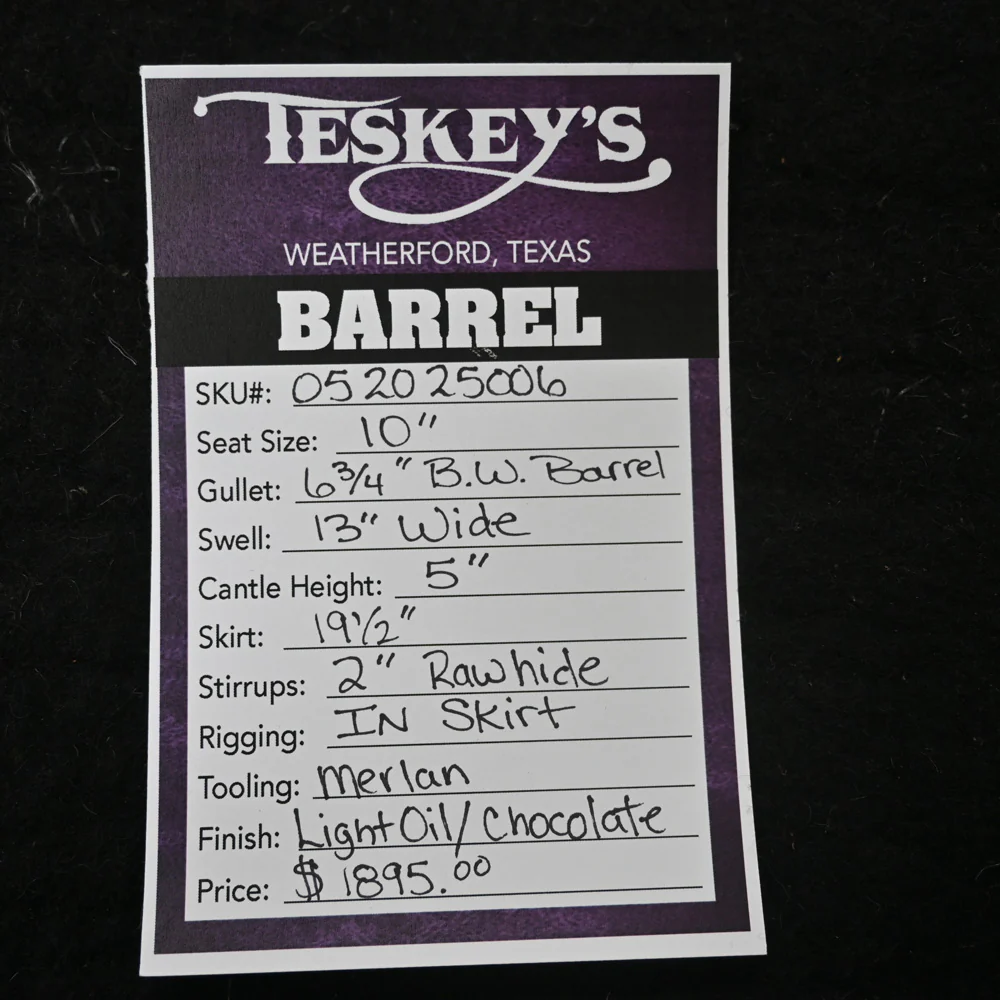 TESKEY'S
WEATHERFORD, TEXAS
BARREL
SKU#: 052025006
Seat Size: 10"
Gullet: 6 3/4" B.W. Barrel
Swell: 13" Wide
Cantle Height: 5"
Skirt: 19 1/2"
Stirrups: 2" Rawhide
Rigging: IN Skirt
Tooling: Merlan
Finish: Light Oil/Chocolate
Price: $1895.00